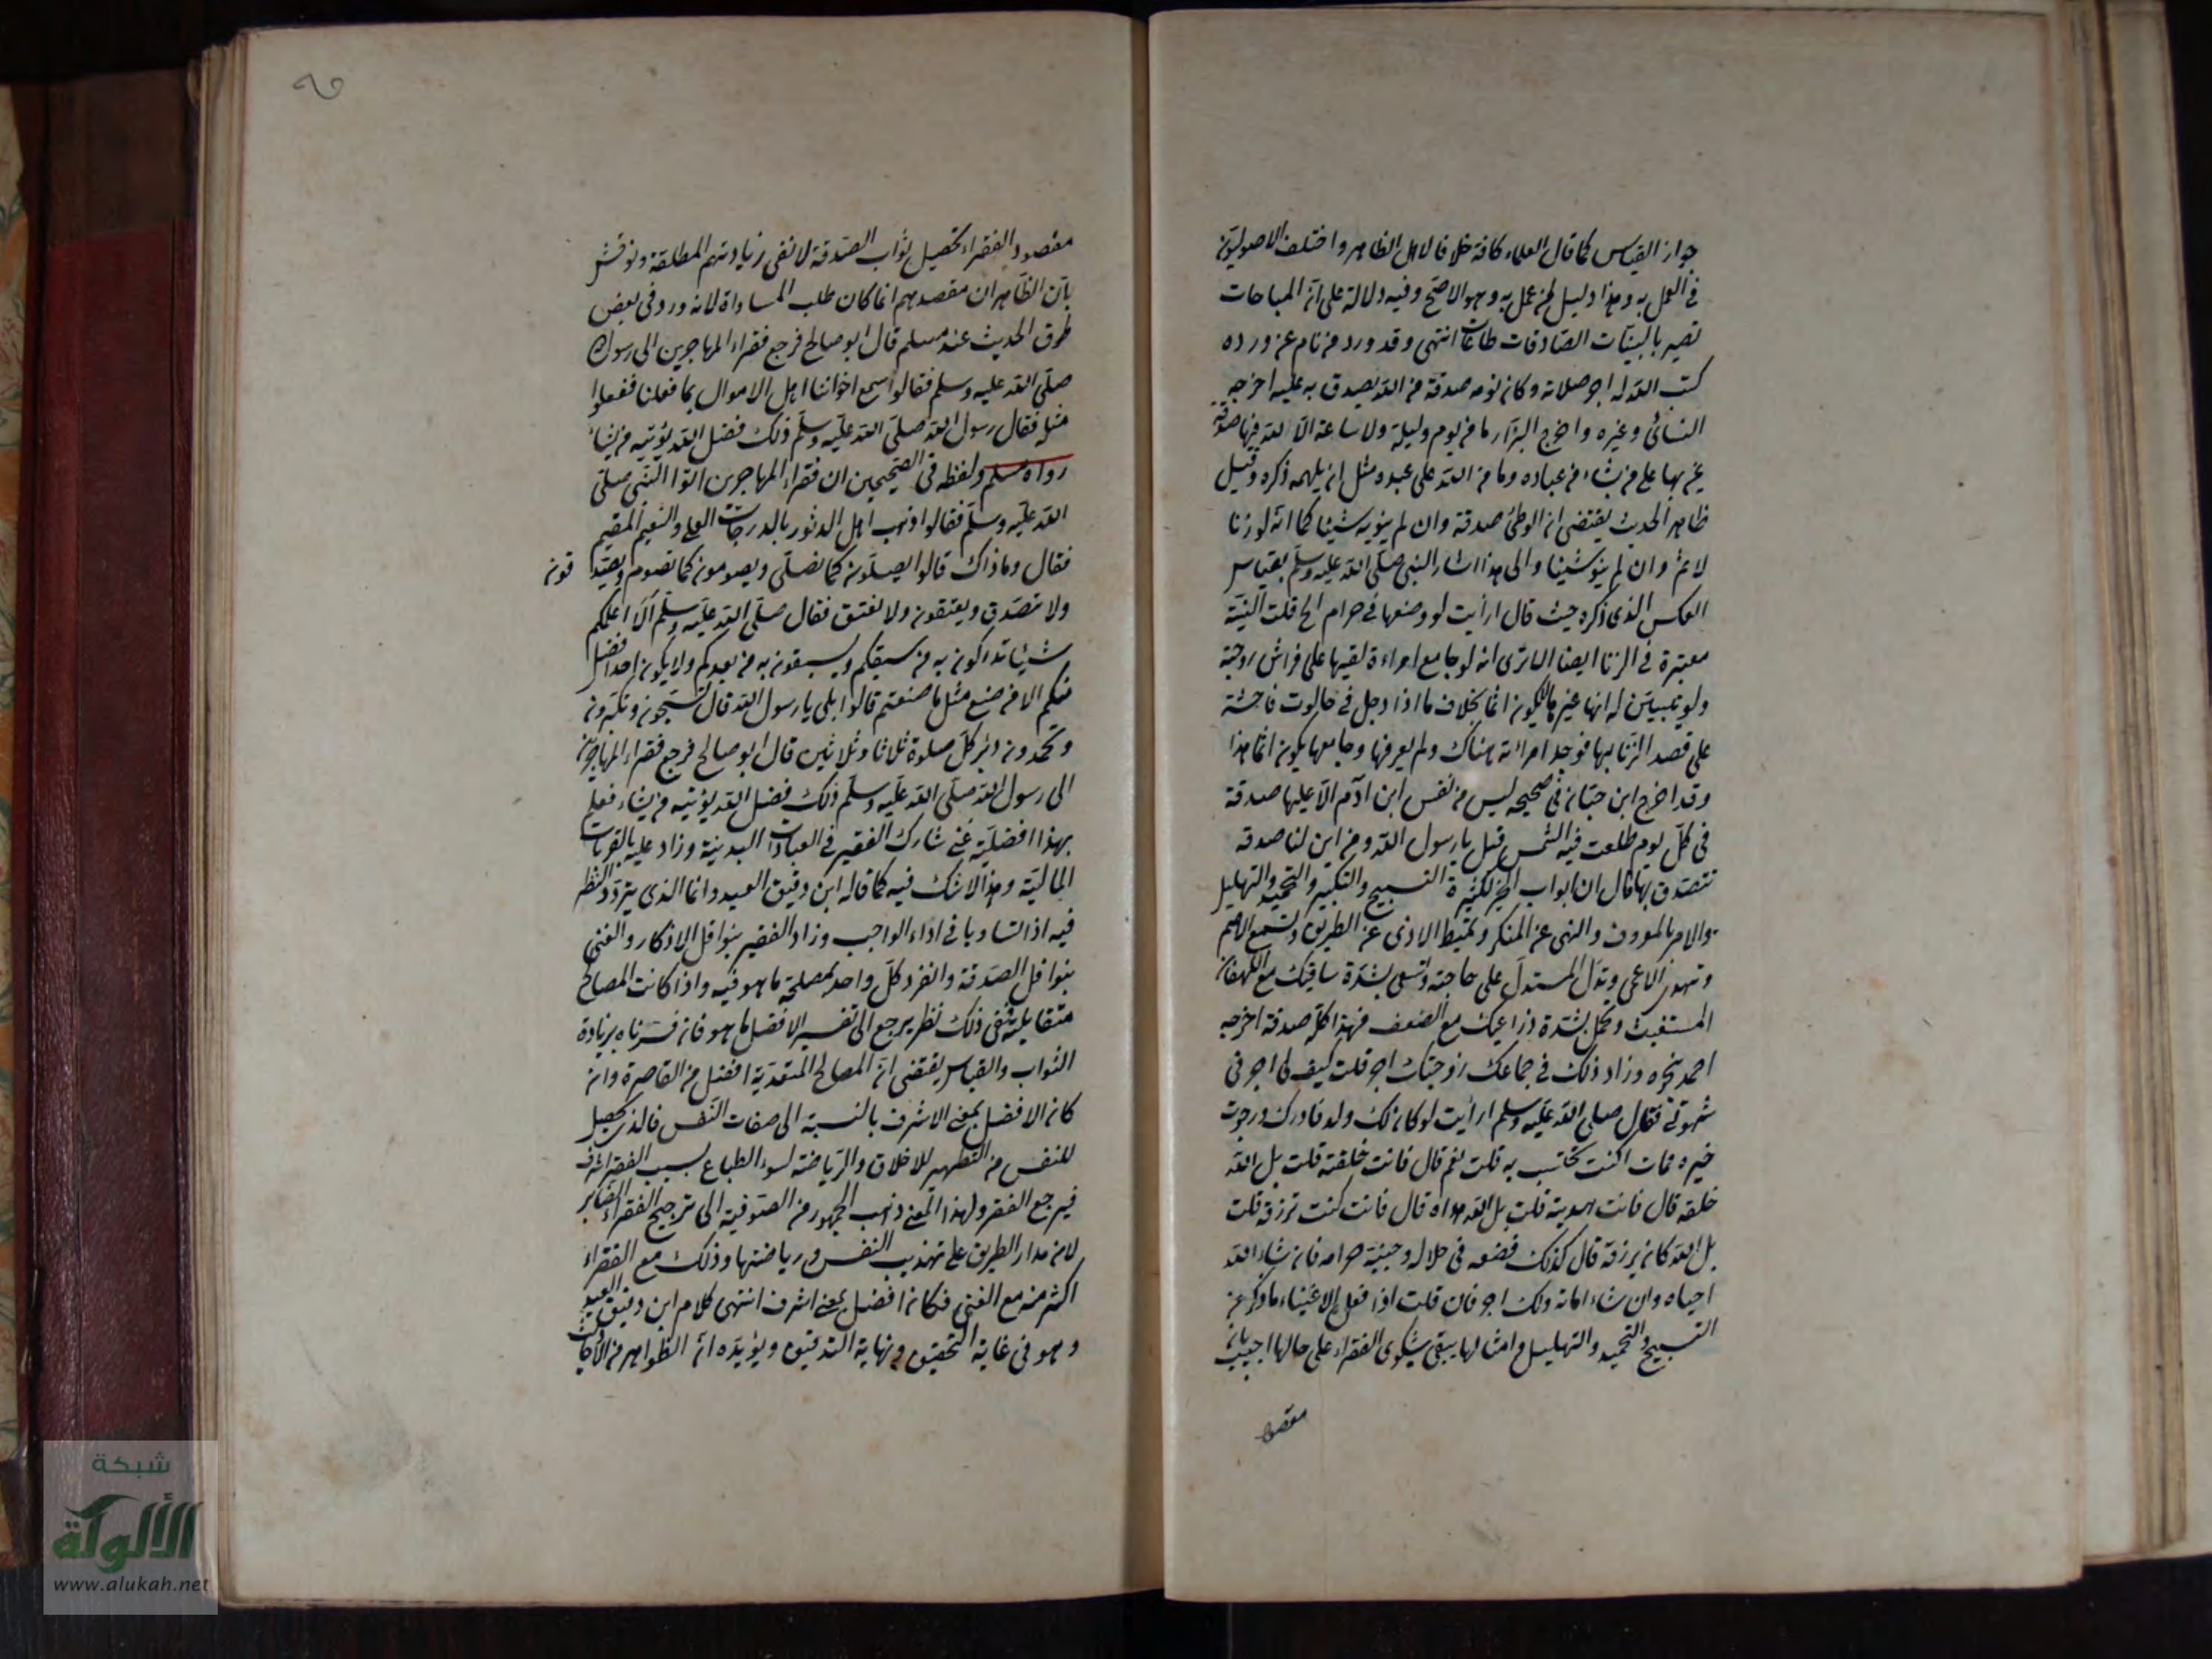 جواز القياس كما قال العلماء كافة خلافا لاهل الظاهر واختلف الاصوليون
في العمل به وهذا دليل لمن عمل به وهو الاصح وفيه دلالة على ان المباحات
تصير بالنيات الصادقات طاعات انتهى وقد ورد من نام عن ورده
كتب الله له اجر صلاته وكان نومه صدقة من الله يصدق به عليه اخرجه
النسائى وغيره واخرج البزار ما من يوم وليلة ولا ساعة الا لله فيها صدقة
يمن بها على من يشاء من عباده وما من الله على عبده مثل ان يلهمه ذكره وقيل
ظاهر الحديث يقتضى ان الوطئ صدقة وان لم ينو به شيئا كما انه لو زنا
لاثم وان لم ينو شيئا والى هذا اشار النبى صلى الله عليه وسلم بقياس
العكس الذى ذكره حيث قال ارأيت لو وضعها في حرام الخ قلت النية
معتبرة في الزنا ايضا الا ترى انه لو جامع امراءة لقيها على فراش زوجته
ولو تبين له انها غير لا يكون اثما بخلاف ما اذا دخل في حالوت فاحشة
على قصد الزنا بها فوجد امرائة هناك ولم يعرفها وجامعها يكون اثما هذا
وقد اخرج ابن حبان في صحيحه ليس من نفس ابن آدم الا عليها صدقة
في كل يوم طلعت فيه الشمس قيل يا رسول الله ومن اين لنا صدقة
نتصدق بها قال ان ابواب الخير لكثيرة التسبيح والتكبير والتحميد والتهليل
والامر بالمعروف والنهى عن المنكر وتميط الاذى عن الطريق وتسمع الاصم
وتهدى الاعمى وتدل المستدل على حاجته وتسعى بشدة ساقيك مع اللهفان
المستغيث وتحمل بشدة ذراعيك مع الضعف فهذا كله صدقة اخرجه
احمد بنحوه وزاد ذلك في جماعك زوجتك اجر قلت كيف لى اجر في
شهوتى فقال صلى الله عليه وسلم ارأيت لو كان لك ولد فادرك ورجوت
خيره فمات اكنت تحتسب به قلت نعم قال فانت خلقته قلت بل الله
خلقه قال فانت هديته قلت بل الله هداه قال فانت كنت ترزقه قلت
بل الله كان يرزقه قال كذلك فضعه في حلاله وجنبه حرامه فان شاء الله
احياه وان شاء اماته ولك اجر فان قلت اذا فعل الاغنياء ما ذكر من
التسبيح والتحميد والتهليل وامثالها يبقى شكوى الفقراء على حالها اجيب بان
مقصود
مقصود الفقراء تحصيل ثواب الصدقة لا نفى زيادتهم المطلقة ونوقش
بان الظاهر ان مقصدهم انما كان طلب المساواة لانه ورد في بعض
طرق الحديث عند مسلم قال ابو صالح فرجع فقراء المهاجرين الى رسول الله
صلى الله عليه وسلم فقالوا سمع اخواننا اهل الاموال بما فعلنا ففعلوا
مثله فقال رسول الله صلى الله عليه وسلم ذلك فضل الله يؤتيه من يشاء
رواه مسلم ولفظه في الصحيحين ان فقراء المهاجرين اتوا النبى صلى
الله عليه وسلم فقالوا ذهب اهل الدثور بالدرجات العلى والنعيم المقيم
فقال وما ذاك قالوا يصلون كما نصلى ويصومون كما نصوم ويتصدقون
ولا نتصدق ويعتقون ولا نعتق فقال صلى الله عليه وسلم الا اعلمكم
شيئا تدركون به من سبقكم وتسبقون به من بعدكم ولا يكون احد افضل
منكم الا من صنع مثل ما صنعتم قالوا بلى يا رسول الله قال تسبحون وتكبرون
وتحمدون دبر كل صلوة ثلاثا وثلاثين قال ابو صالح فرجع فقراء المهاجرين
الى رسول الله صلى الله عليه وسلم ذلك فضل الله يؤتيه من يشاء فعلم
بهذا افضلية غنى شارك الفقير في العبادات البدنية وزاد عليه بالقربات
المالية وهذا لا شك فيه كما قاله ابن دقيق العيد وانما الذى يتردد النظر
فيه اذا تساويا في اداء الواجب وزاد الفقير بنوافل الاذكار والغنى
بنوافل الصدقة وانفرد كل واحد بمصلحة ما هو فيه واذا كانت المصالح
متقابلة ففى ذلك نظر يرجع الى تفسير الافضل ما هو فان فسرناه بزيادة
الثواب والقياس يقتضى ان المصالح المتعدية افضل من القاصرة وان
كان الافضل بمعنى الاشرف بالنسبة الى صفات النفس فالذى يحصل
للنفس من التطهير للاخلاق والرياضة لسوء الطباع بسبب الفقر اشرف
فيرجع الفقر ولهذا المعنى ذهب الجمهور من الصوفية الى ترجيح الفقراء الصابر
لان مدار الطريق على تهذيب النفس ورياضتها وذلك مع الفقراء
اكثر منه مع الغنى فكان افضل بمعنى اشرف انتهى كلام ابن دقيق العيد
وهو في غاية التحقيق ونهاية التدقيق ويؤيده ان الظواهر من الاحاديث
شبكة
الألوكة
www.alukah.net